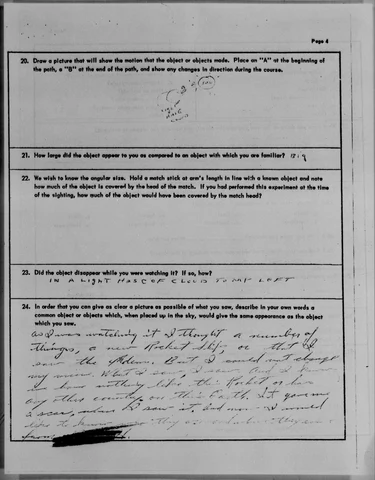 Page 4
20. Draw a picture that will show the motion that the object or objects made. Place an "A" at the beginning
of the path, a "B" at the end of the path, and show any changes in direction during the course.
21. How large did the object appear to you as compared to an object with which you are familiar?
22. We wish to know the angular size. Hold a match stick at arm's length in line with a known object and note
how much of the object is covered by the head of the match. If you had performed this experiment at the time
of the sighting, how much of the object would have been covered by the match head?
23. Did the object disappear while you were watching it? If so, how?
IN A LIGHT HASE OF CLOUD TO MY LEFT
24. In order that you can give as clear a picture as possible of what you saw, describe in your own words a
common object or objects which, when placed up in the sky, would give the same appearance as the object
which you saw.
as I was watching it I thought a number of
things, a new Rocket ship, or that I
saw the But I could not change
my mind. What I saw, I saw. And I know
we have nothing like this Rocket or has
any other country on this Earth. it gave me
a scar, when I saw it, and now I would
like to know
from